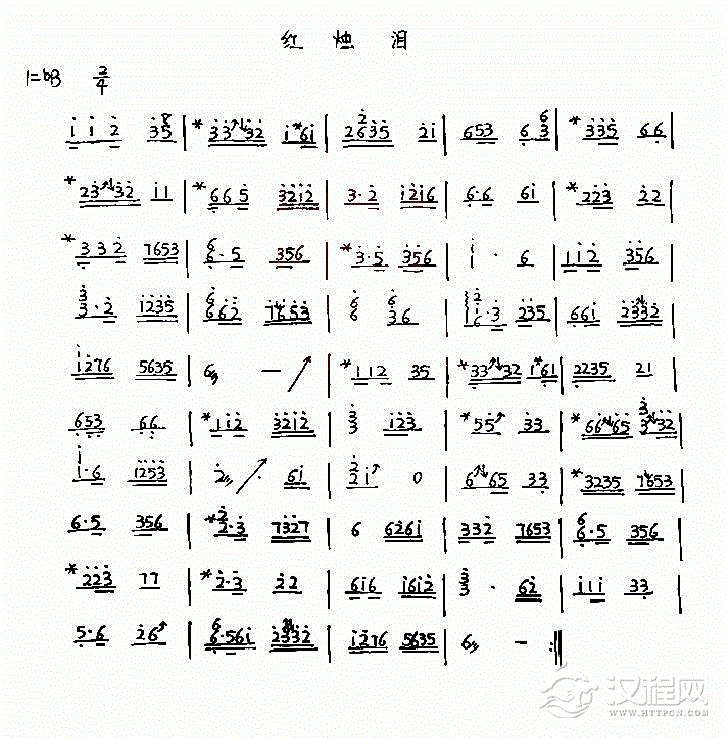 红 烛 泪
1=♭B 2/4
i i 2 35 | *33 32 i*6i | 2635 2i | 653 63 | *335 66 |
*23 32 i1 | *665 32i2 | 3·2 i2i6 | 6·6 6i | *223 22 |
*332 7653 | 6·5 356 | *3·5 356 | i· 6 | 1i2 356 |
3·2 1235 | 662 7653 | 6 36 | 6·3 235 | 66i 2332 |
i276 5635 | 6 — | *112 35 | *33 32 1*61 | 2235 21 |
653 66 | *1i2 32i2 | 3 i23 | *55 33 | *66 65 332 |
i·6 1253 | 2 · 6i | 2i 0 | 6 65 33 | *3235 7653 |
6·5 356 | *2·3 7327 | 6 626i | 332 7653 | 6·5 356 |
*223 77 | *2·3 22 | 6i6 i6i2 | 3 · 62 | i1i 33 |
5·6 26 | 6·56i 2332 | i276 5635 | 6 — :||
汉程网
WWW.HTTPCN.COM